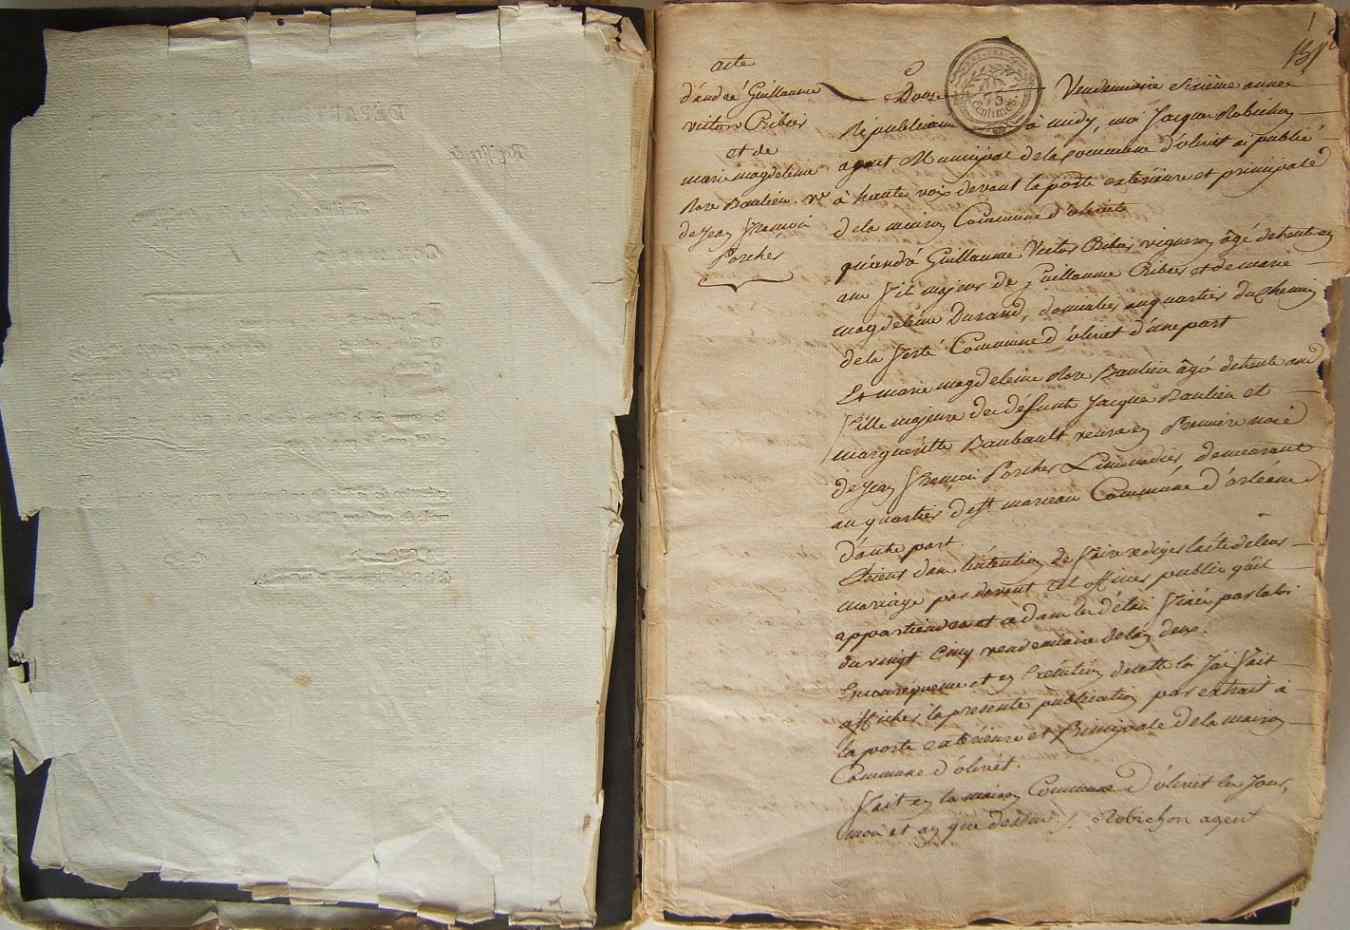 acte
d'andré Guillaume
victor Ribier
et de
marie magdeleine
Rose Baulieu. Ve
de Jean François
Porcher
Douze Vendemiaire sixième année
75
centimes
Républicaine à midy, moi Jacque Robichon
agent Municipal de la commune d'olivet ai publié
à haute voix devant la porte exterieure et principale
de la maison Commune d'olivet
qu'andré Guillaume Victor Ribier vigneron âgé de trente
ans fil majeur de Guillaume Ribier et de marie
magdeleine Durand, domicilié au quartier du Chemin
de la ferté Commune d'olivet d'une part
Et marie magdeleine Rose Baulieu âgé de trente ans
fille majeure de défunt Jacque Baulieu et
margueritte Baubault veuve en Premiere noce
de Jean François Porcher Limonadier demeurant
au quartier de St marceau Commune d'orléans
d'autre part.
Etoient dans l'intention de faire rediger l'acte de leur
mariage par devant tel officier public qu'il
appartiendra et ce dans le délai fixé par la loi
du vingt cinq vendemiaire de l'an deux.
En consequence et en Exécution de cette loi J'ai fait
afficher la presente publication par extrait à
la porte exterieure et Principale de la maison
Commune d'olivet.
Fait en la maison Commune d'olivet les Jour,
moi et an que dessus. Robichon agent